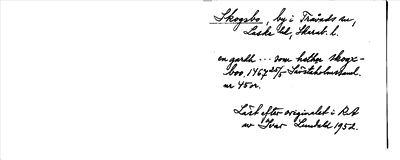 Skogsbo, by i Trävads sn,
Laske hd, Skarab. l.
en gardh ... som hether skogx-
boo 1467 25/5 Säveståholmssaml.
nr 45 or.
Läst efter originalet i RA
av Ivar Lundahl 1952.